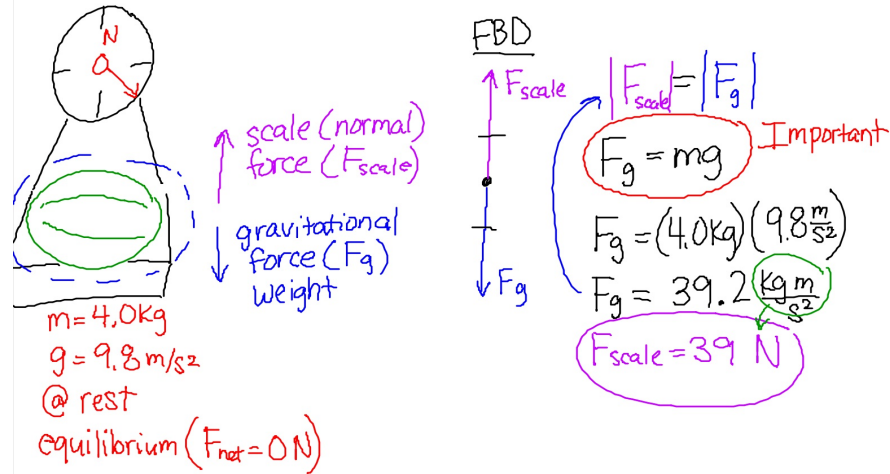 N
0
scale (normal)
force (Fscale)
gravitational
force (Fg)
weight
m = 4.0kg
g = 9.8 m/s²
@ rest
equilibrium (Fnet = 0 N)
FBD
Fscale
Fg
|Fscale| = |Fg|
Fg = mg
Important
Fg = (4.0kg)(9.8 m/s²)
Fg = 39.2 kg m/s²
Fscale = 39 N